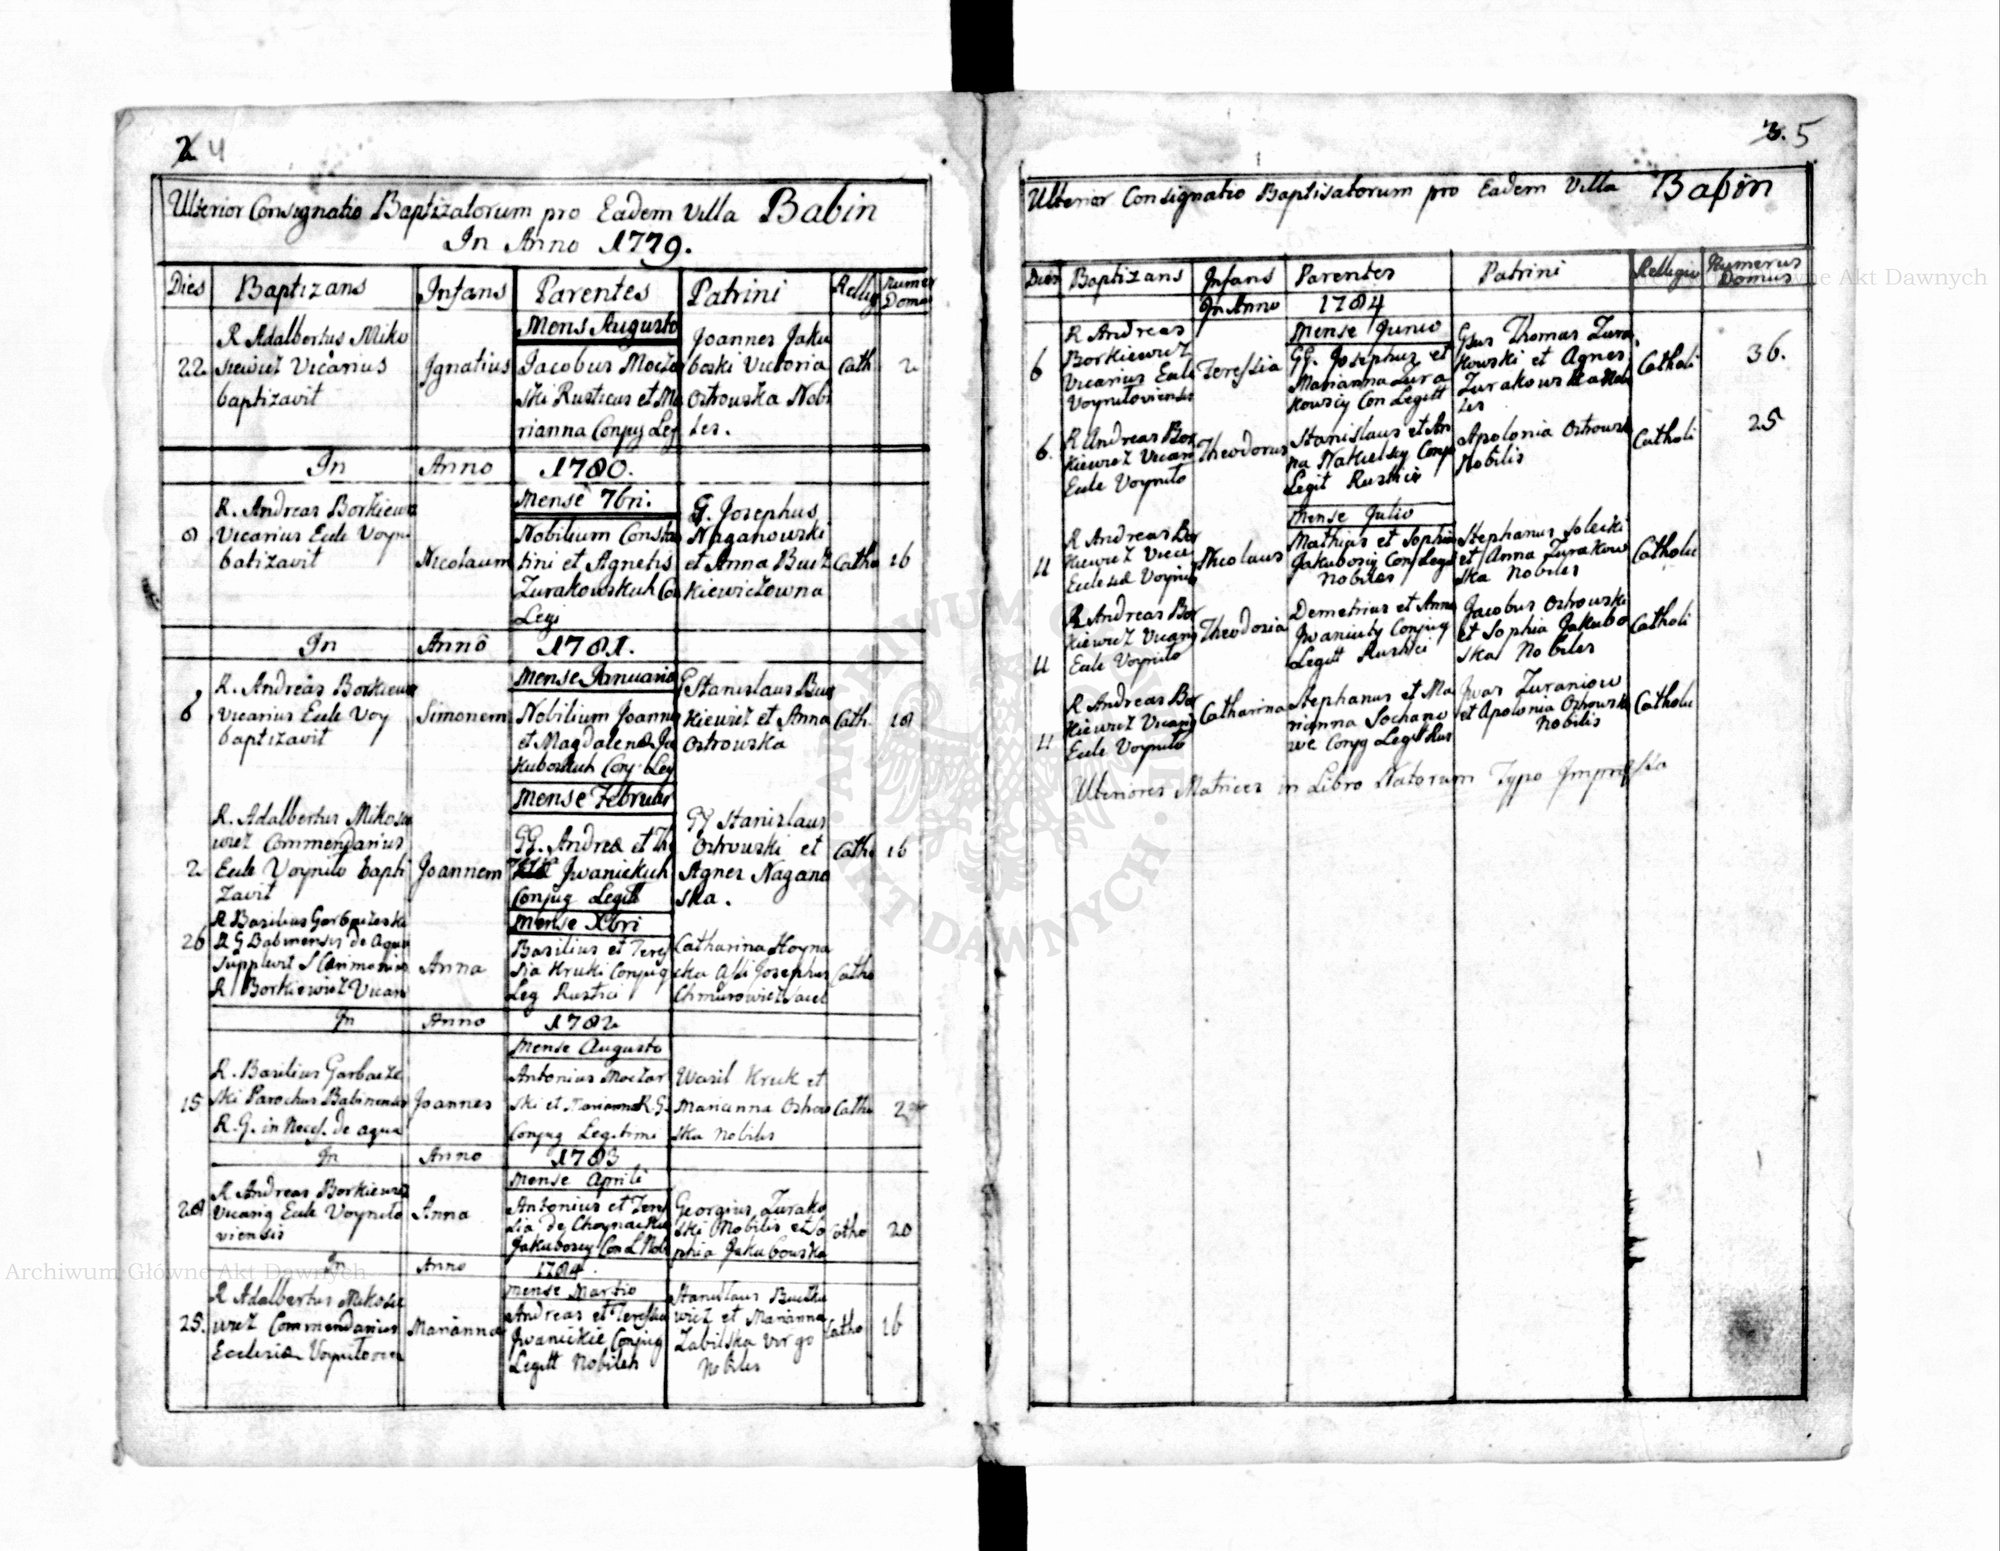 2 4
Ulterior Consignatio Baptizatorum pro Eadem Villa Babin
In Anno 1779.
Dies Baptizans Infans Parentes Patrini Relig Numer Domus
Mens Augusto
22 R Adalbertus Miko
siewicz Vicarius
baptizavit
Ignatius
Jacobus Moczar
ski Rusticus et Ma
rianna Conjug Leg
Joannes Jaku
boski Victoria
Ostrowska Nobi
les.
Cath 2
In Anno 1780.
Mense 7bri.
8 R. Andreas Borkiewicz
Vicarius Eccle Voyni
batizavit
Nicolaum
Nobilium Consta
tini et Agnetis
Zurakowskich Con
Legi
G. Josephus
Naganowski
et Anna Bucz
kiewiczowna
Catho 16
In Anno 1781.
Mense Januario
6 R. Andreas Borkiewi
Vicarius Eccle Voy
baptizavit
Simonem
Nobilium Joannis
et Magdalena Ja
kuboskich Conj. Leg
G Stanislaus Bucz
kiewicz et Anna
Ostrowska
Cath. 18
Mense Februar
2 R. Adalbertus Mikosie
wicz Commendarius
Eccle Voynilo bapti
zavit
Joannem
GG. Andrea et The
Iwanickich
Conjug Legitt
GG Stanislaus
Ostrowski et
Agnes Nagano
ska.
Catho 16
Mense Xbri
26 R Basilius Garbaczeski
R G Babinensis de Aqua
supplevit S Cerimonias
R Borkiewicz Vican
Anna
Basilius et Teres
sia Kruki Conjug
Leg Rustici
Catharina Hoyna
cka Assi Josephus
Chmurowicz Sacel
Catho
In Anno 1782
Mense Augusto
15 R. Basilius Garbacze
ski Parochus Babinensis
R. G. in Neces. de aqua
Joannes
Antonius Moczar
ski et Marianna R. G.
Conjug Legitimi
Wasil Kruk et
Marianna Ostrow
ska Nobiles
Catho 2
In Anno 1783
Mense Aprili
28 R Andreas Borkiewicz
Vicariq Eccle Voynilo
viensis
Anna
Antonius et Tere
sia de Choynackie
Jakuboscy Con L Nob
Georgius Zurako
ski Nobilis et So
phia Jakubowska
Catho 20
In Anno 1784.
Mense Martio
25. R Adalbertus Mikosie
wicz Commendarius
Ecclesiæ Voynilovien
Marianna
Andreas et Teressia
Iwanickie Conjug
Legitt Nobiles
Stanislaus Buczke
wicz et Marianna
Zabilska Virgo
Nobiles
Catho 16
3. 5
Ulterior Consignatio Baptisatorum pro Eadem Villa Babin
Dies Baptizans Infans Parentes Patrini Religio Numerus Domus
In Anno 1784
Mense Junio
6 R Andreas
Borkiewicz
Vicarius Eccle
Voyniloviensis
Teressia
GG. Josephus et
Marianna Zura
kowscy Con Legitt
Gsus Thomas Zura
kowski et Agnes
Zurakowska Nobi
les
Catholi 36.
6. R Andreas Bor
kiewicz Vicari
Eccle Voynilo
Theodorus
Stanislaus et An
na Nakielscy Conju
Legit Rustici
Apolonia Ostrowsk
Nobilis
Catholi 25
Mense Julio
11 R Andreas Bor
kiewicz Vicci
Ecclesiæ Voynilo
Nicolaus
Mathias et Sophia
Jakuboscy Conj Legi
Nobiles
Stephanus Solecki
et Anna Zurakow
ska Nobiles
Catholic
11 R Andreas Bor
kiewicz Vicariq
Eccle Voynilo
Theodosia
Demetrius et Anna
Iwaniuty Conjug
Legitt Rustici
Jacobus Ostrowski
et Sophia Jakubo
ska Nobiles
Catholi
11 R Andreas Bor
kiewicz Vicariq
Eccle Voynilo
Catharina
Stephanus et Ma
rianna Sochano
we Conjg Legit Rus
Iwas Zuraniow
et Apolonia Ostrowsk
Nobilis
Catholic
Ulteriores Matrices in Libro Natorum Typo Impresso
Archiwum Główne Akt Dawnych
Archiwum Główne Akt Dawnych
ARCHIWUM GŁÓWNE AKT DAWNYCH